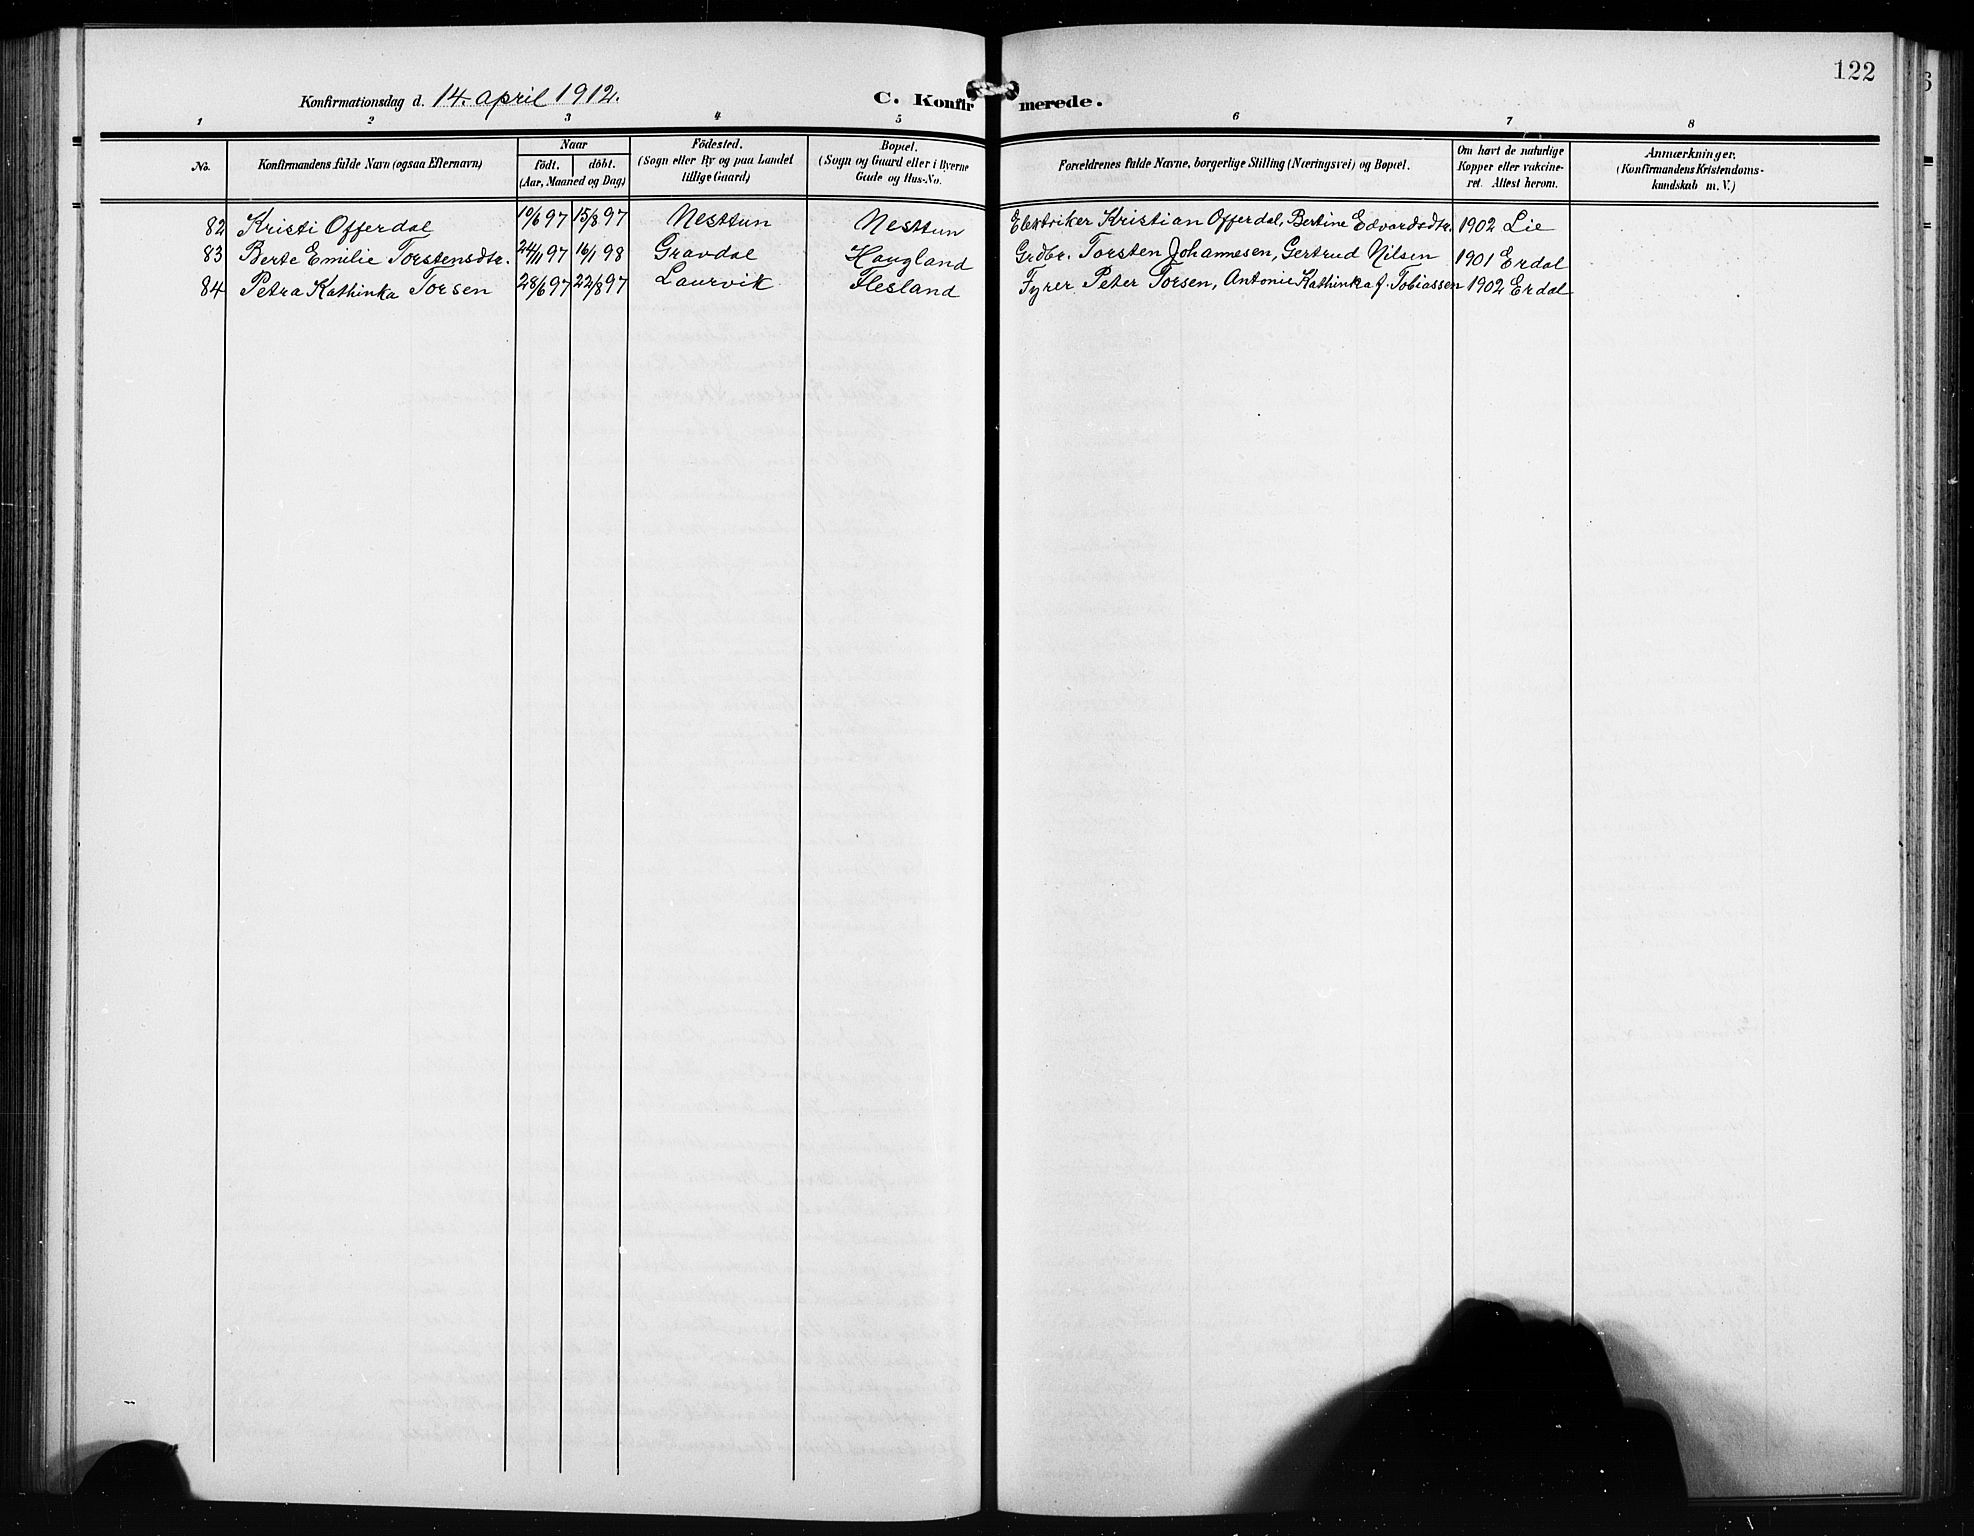 122
Konfirmationsdag d. 14. april 1912. C. Konfirmerede.
1 2 3 4 5 6 7 8
No. Konfirmandens fulde Navn (ogsaa Efternavn) Naar födt. döbt. (Aar, Maaned og Dag) Födested. (Sogn eller By og paa Landet tillige Gaard) Bopæl. (Sogn og Gaard eller i Byerne Gade og Hus-No. Forældrenes fulde Navne, borgerlige Stilling (Næringsvei) og Bopæl. Om havt de naturlige Kopper eller vakcineret. Attest herom. Anmærkninger. (Konfirmandens Kristendomskundskab m. V.)
82 Kristi Offerdal 10/6 97 15/8 97 Nesttun Nesttun Elektriker Kristian Offerdal, Bertine Edvardsdtr. 1902 Lie
83 Berte Emilie Torstensdtr. 24/11 97 16/1 98 Gravdal Haugland Grdbr. Torsten Johannesen, Gertrud Nilsen 1901 Erdal
84 Petra Kathinka Torsen 28/6 97 22/8 97 Laurvik Flesland Fyrer Peter Torsen, Antonie Kathinka f. Tobiassen 1902 Erdal